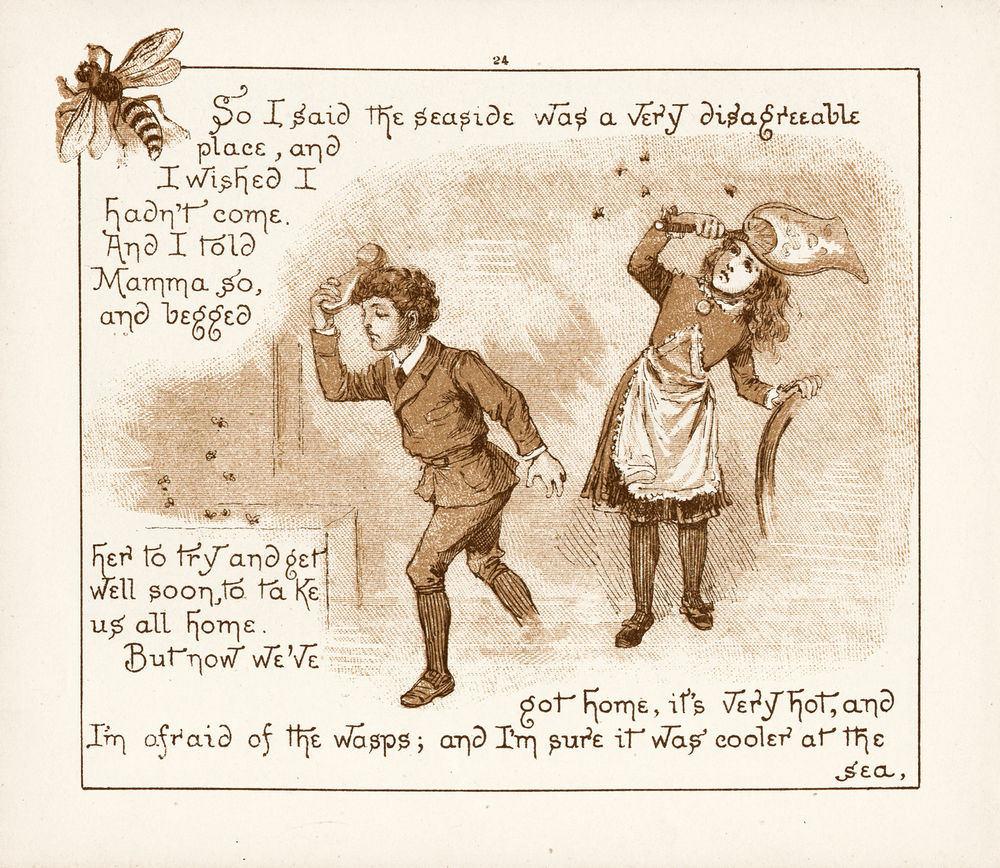 24
So I said the seaside was a very disagreeable
place, and
I wished I
hadn't come.
And I told
Mamma so,
and begged
her to try and get
well soon, to take
us all home.
But now we've
got home, it's very hot, and
I'm afraid of the wasps; and I'm sure it was cooler at the
sea,